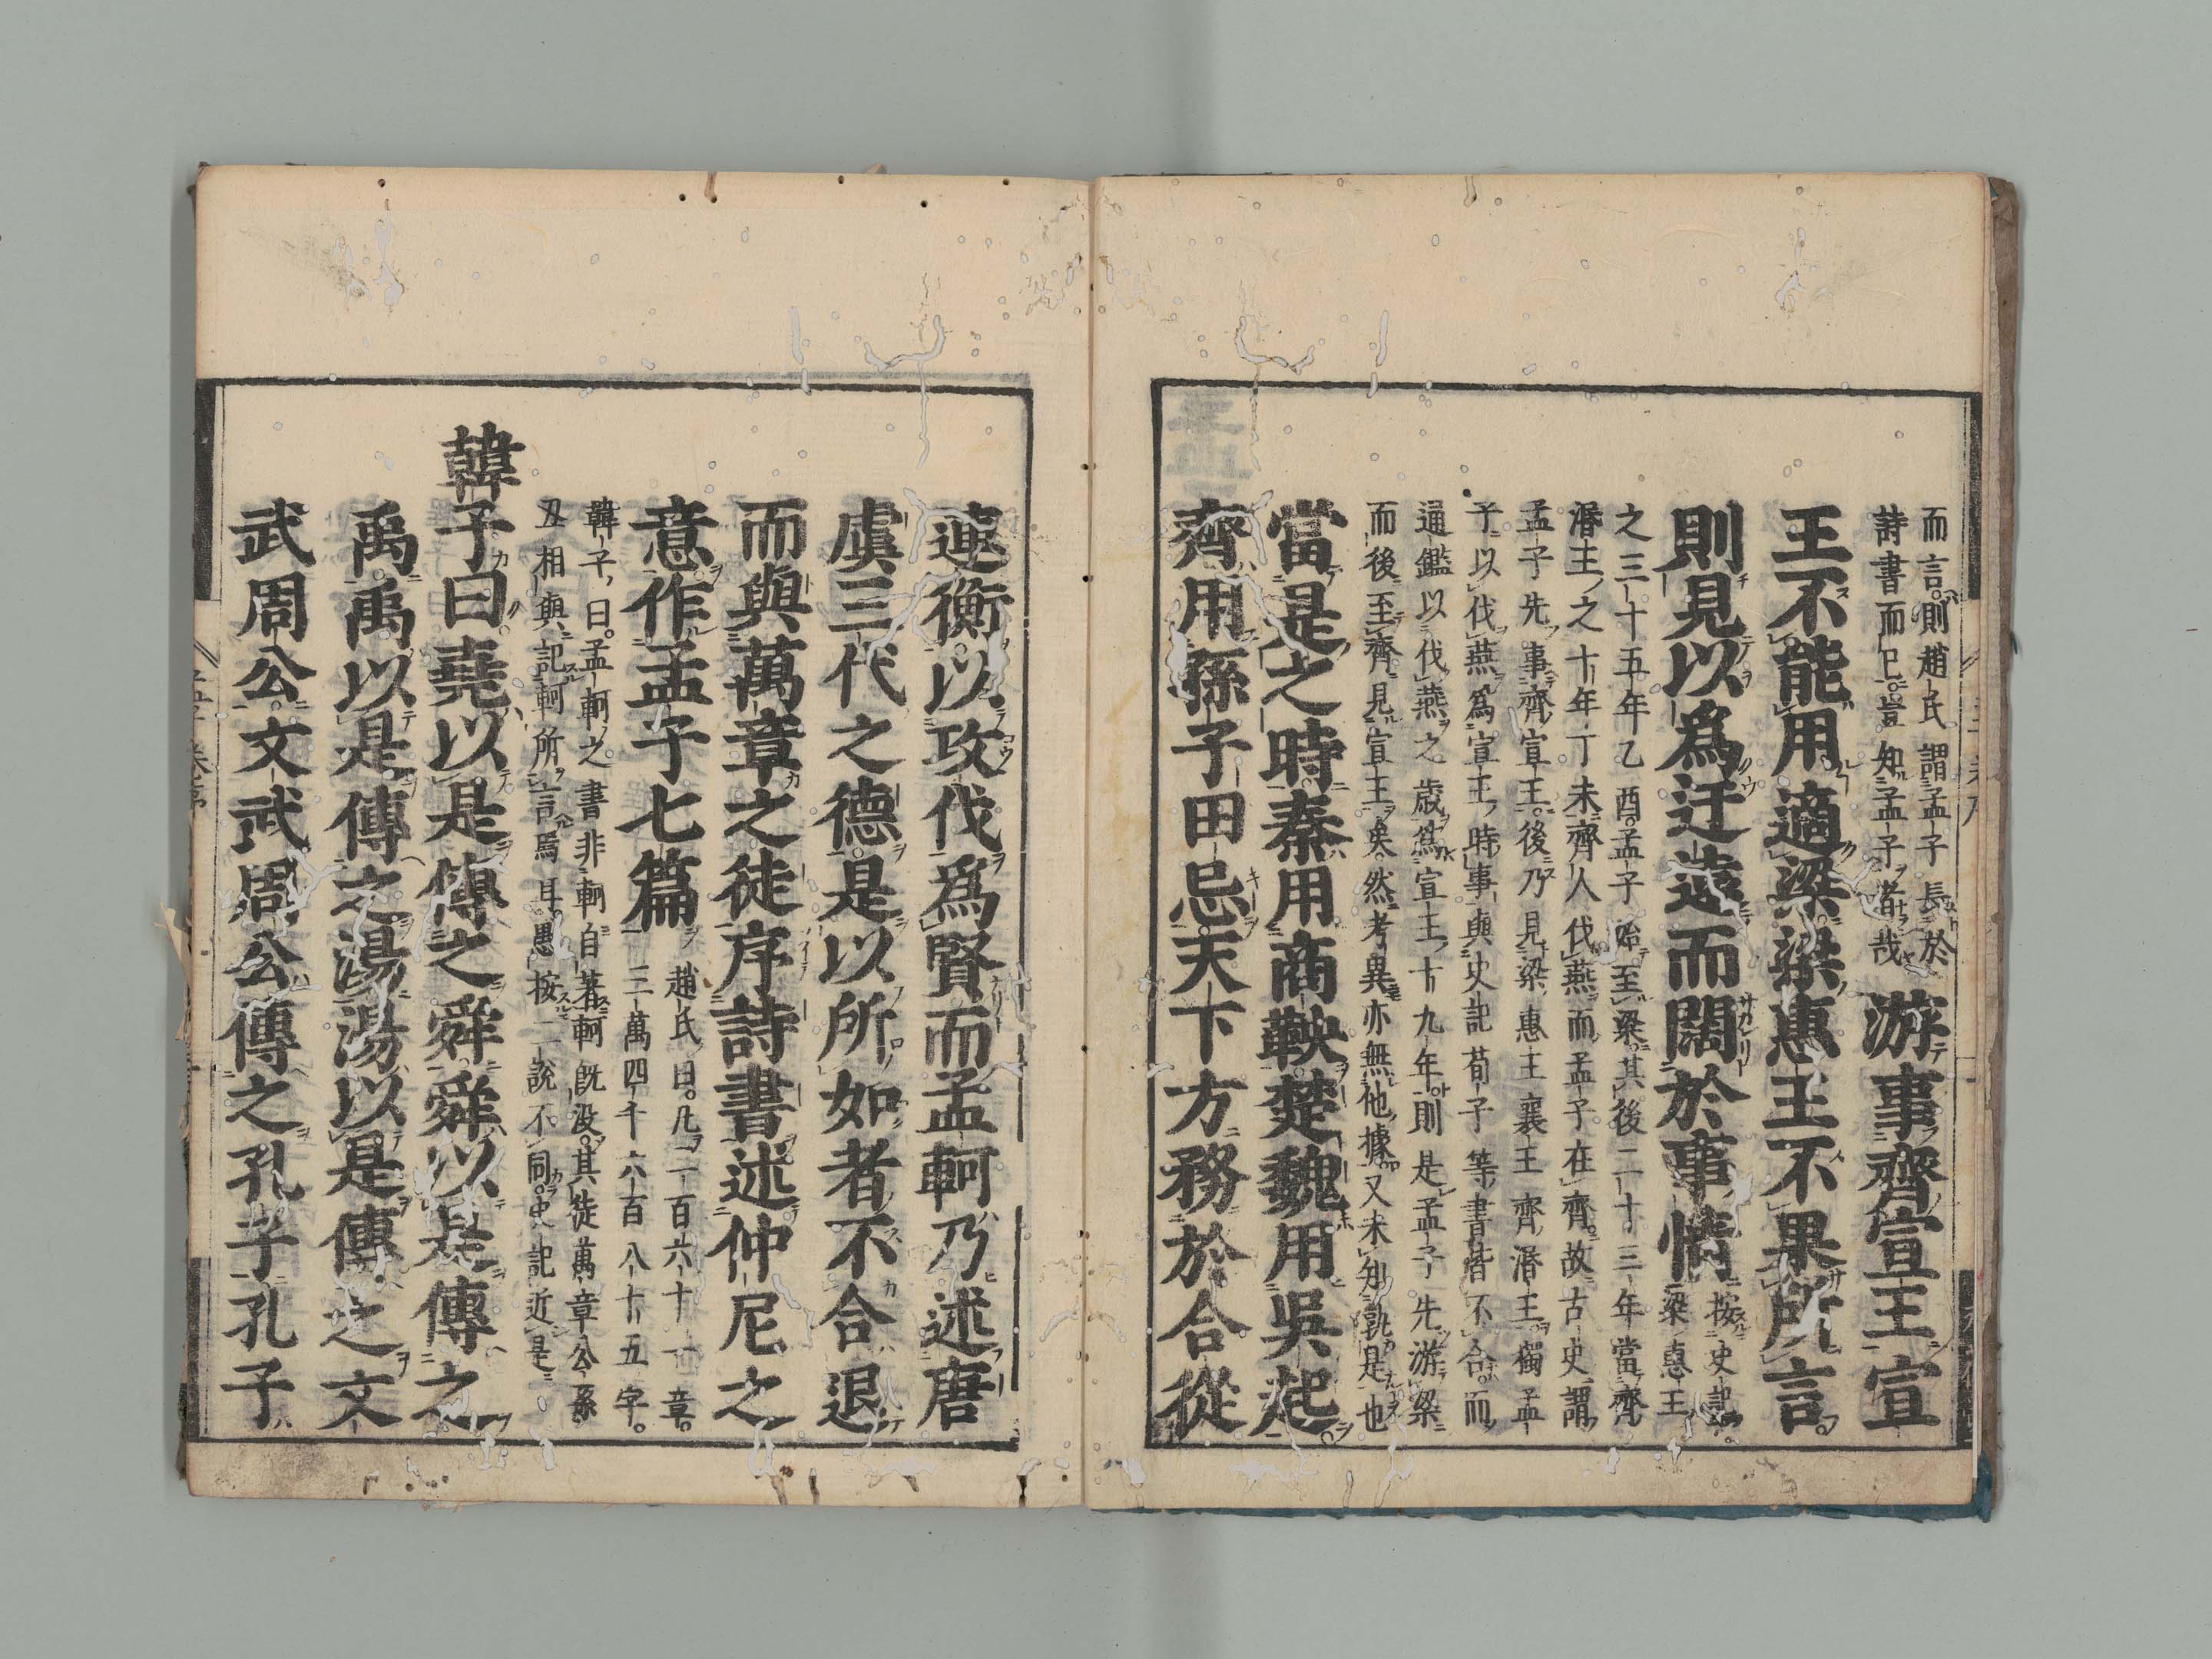 而言則趙氏謂孟子長於
詩書而已豈知孟子者哉
游事齊宣王宣
王不能用適梁梁惠王不果所言
則見以爲迂遠而闊於事情
按史記
梁惠王
之三十五年乙酉孟子始至梁其後二十三年當齊
湣王之十年丁未齊人伐燕而孟子在齊故古史謂
孟子先事齊宣王後乃見梁惠王襄王齊湣王獨孟
子以伐燕爲宣王時事與史記荀子等書皆不合而
通鑑以伐燕之歳爲宣王十九年則是孟子先游梁
而後至齊見宣王矣然考異亦無他據又未知孰是也
當是之時秦用商鞅楚魏用吳起
齊用孫子田忌天下方務於合從
連衡以攻伐爲賢而孟軻乃述唐
虞三代之德是以所如者不合退
而與萬章之徒序詩書述仲尼之
意作孟子七篇
趙氏曰凡二百六十一章
三萬四千六百八十五字
韓子曰孟軻之書非軻自著軻既没其徒萬章公孫
丑相與記軻所言焉耳愚按二說不同史記近是
韓子曰堯以是傳之舜舜以是傳之
禹禹以是傳之湯湯以是傳之文
武周公文武周公傳之孔子孔子